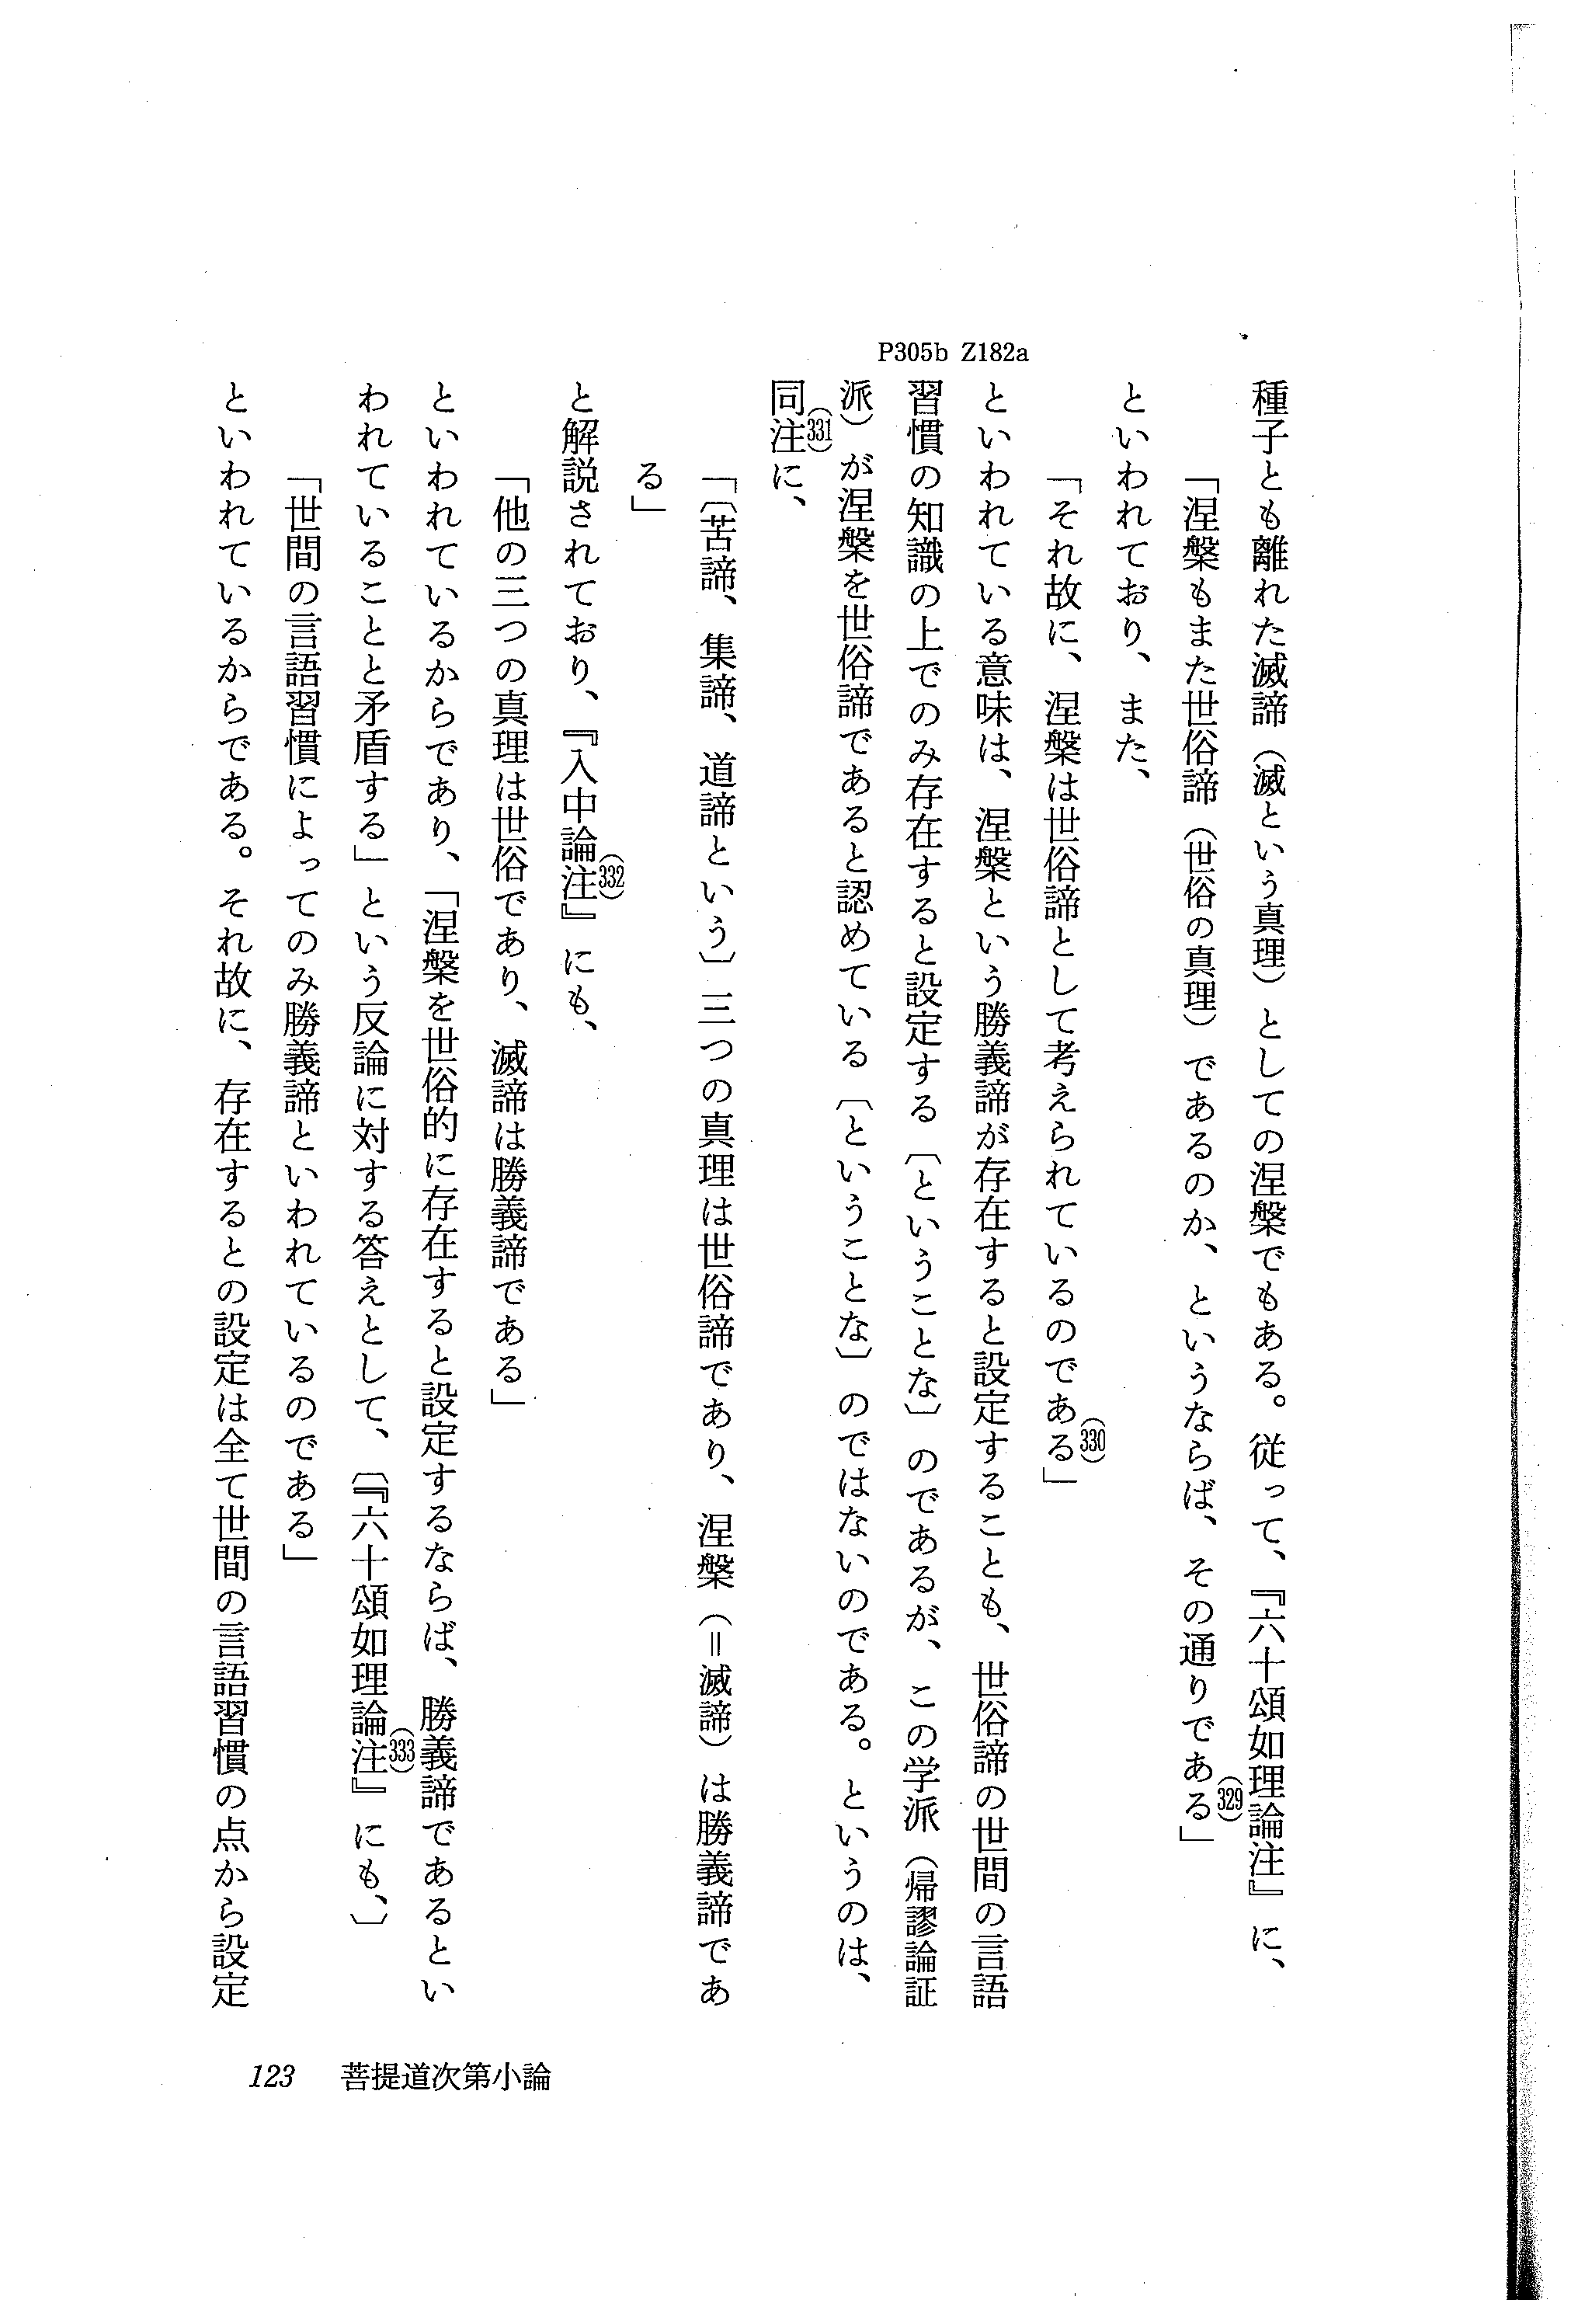 P305b Z182a
種子とも離れた滅諦（滅という真理）としての涅槃でもある。従って、『六十頌如理論注』に、
「涅槃もまた世俗諦（世俗の真理）であるのか、というならば、その通りである」(329)
といわれており、また、
「それ故に、涅槃は世俗諦として考えられているのである」(330)
といわれている意味は、涅槃という勝義諦が存在すると設定することも、世俗諦の世間の言語
習慣の知識の上でのみ存在すると設定する〔ということな〕のであるが、この学派（帰謬論証
派）が涅槃を世俗諦であると認めている〔ということな〕のではないのである。というのは、
同注(331)に、
「〔苦諦、集諦、道諦という〕三つの真理は世俗諦であり、涅槃（＝滅諦）は勝義諦であ
る」
と解説されており、『入中論注(332)』にも、
「他の三つの真理は世俗であり、滅諦は勝義諦である」
といわれているからであり、「涅槃を世俗的に存在すると設定するならば、勝義諦であるとい
われていることと矛盾する」という反論に対する答えとして、〔『六十頌如理論注(333)』にも、〕
「世間の言語習慣によってのみ勝義諦といわれているのである」
といわれているからである。それ故に、存在するとの設定は全て世間の言語習慣の点から設定
123 菩提道次第小論